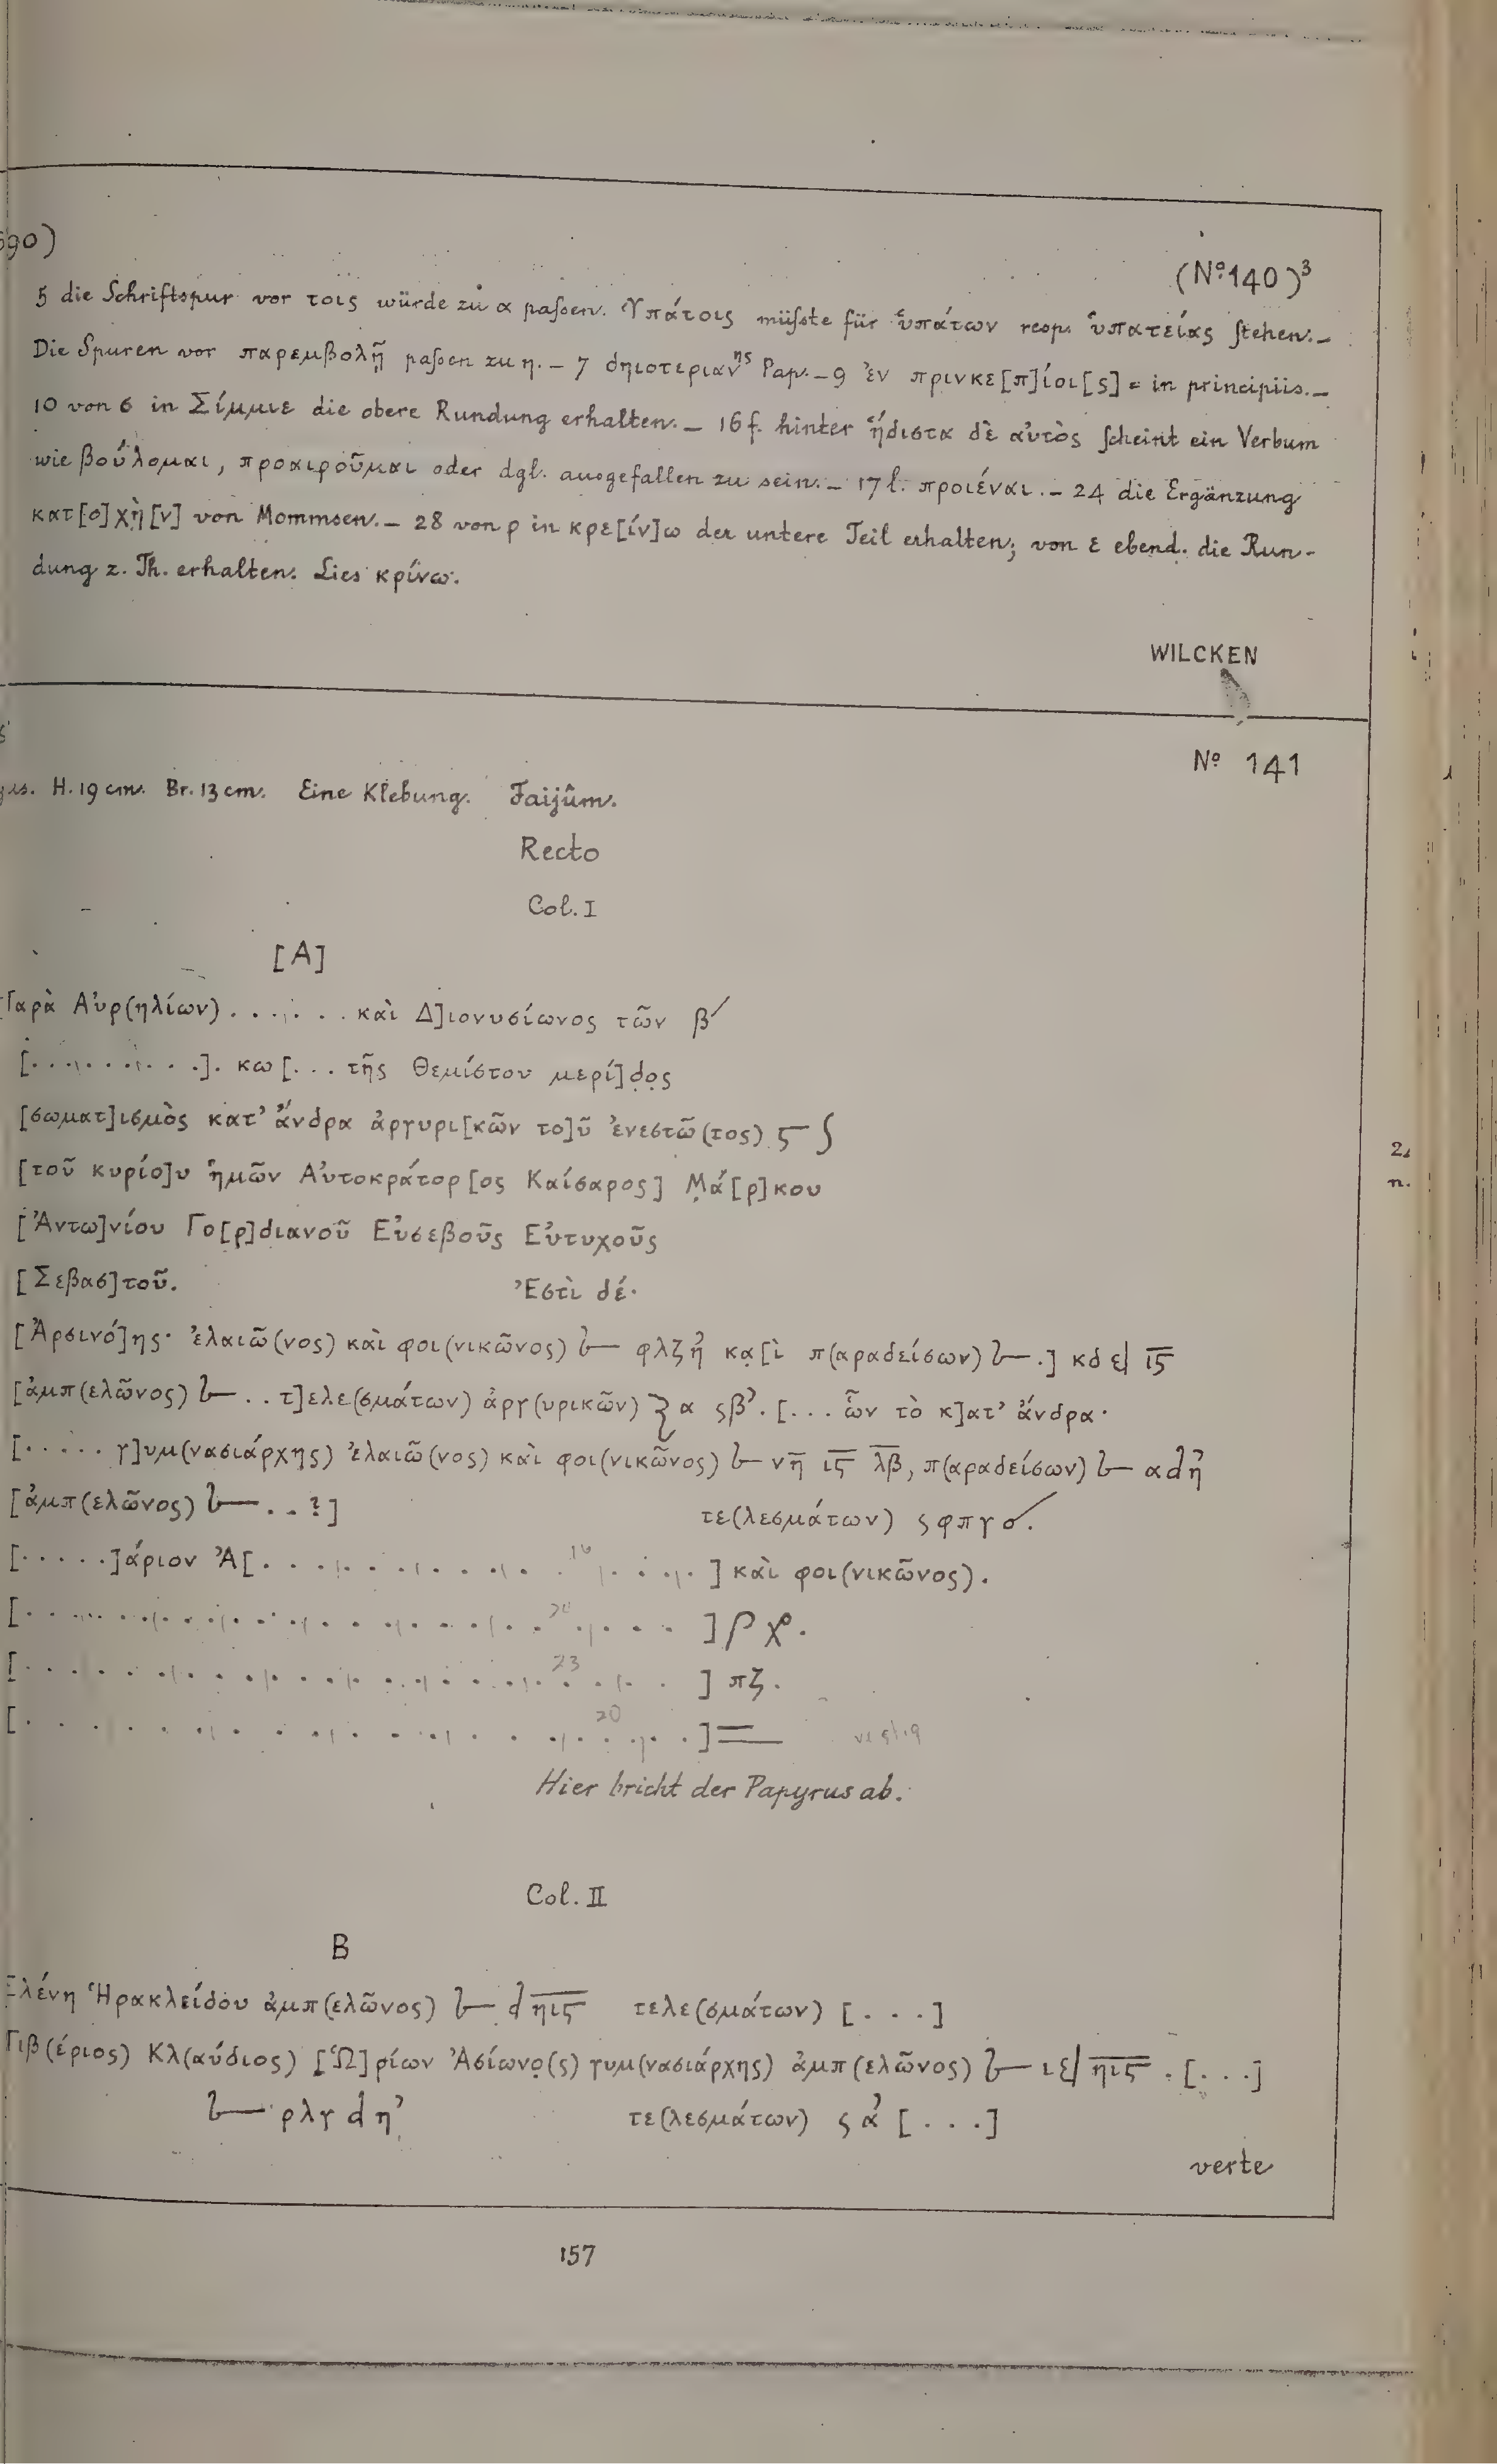 90)
(No 140)3
5 die Schriftspur vor τοις würde zu α paſsen. Ὑπάτοις müſste für ὑπάτων resp. ὑπατείας ſtehen. –
Die Spuren vor παρεμβολῇ paſsen zu η. – 7 δηιοτεριανης Pap. – 9 ἐν πρινκε[π]ίοι[ς] = in principiis. –
10 von σ in Σίμμιε die obere Rundung erhalten. – 16 f. hinter ἥδιστα δὲ αὐτὸς ſcheint ein Verbum
wie βούλομαι, προαιροῦμαι oder dgl. ausgefallen zu sein. – 17 l. προιέναι. – 24 die Ergänzung
κατ[ο]χὴ[ν] von Mommsen. – 28 von ρ in κρε[ίν]ω der untere Teil erhalten; von ε ebend. die Run-
dung z. Th. erhalten. Lies κρίνω.
WILCKEN
No 141
H. 19 cm. Br. 13 cm. Eine Klebung. Faijûm.
Recto
Col. I
[A]
Παρὰ Αὐρ(ηλίων) . . . . . . καὶ Δ]ιονυσίωνος τῶν β´
[. . . . . . . . .]. κω[. . . τῆς Θεμίστου μερί]δος
[σωματ]ισμὸς κατ’ ἄνδρα ἀργυρι[κῶν το]ῦ ἐνεστῶ(τος) ϛ ʃ
[τοῦ κυρίο]υ ἡμῶν Αὐτοκράτορ[ος Καίσαρος] Μά[ρ]κου
[Ἀντω]νίου Γο[ρ]διανοῦ Εὐσεβοῦς Εὐτυχοῦς
[Σεβασ]τοῦ. Ἐστὶ δέ·
[Ἀρσινό]ης· ἐλαιῶ(νος) καὶ φοι(νικῶνος) 𐅵 φλζ η̉ κα[ὶ π(αραδείσων) .] κδ ε ιϛ
[ἀμπ(ελῶνος) . . τ]ελε(σμάτων) ἀργ(υρικῶν) α ϛβ’. [. . . ὧν τὸ κ]ατ’ ἄνδρα·
[. . . . . γ]υμ(νασιάρχης) ἐλαιῶ(νος) καὶ φοι(νικῶνος) νη ιϛ λβ, π(αραδείσων) α d η̉
[ἀμπ(ελῶνος) . . ?] τε(λεσμάτων) ϛ φπγ σ.
[. . . . .]άριον Ἀ[. . . . . . . . . . . . . . .] καὶ φοι(νικῶνος).
[. . . . . . . . . . . . . . . . . . . .]ρ χ.
[. . . . . . . . . . . . . . . . . . . .] πζ.
[. . . . . . . . . . . . . . . . . . . .]=
Hier bricht der Papyrus ab.
Col. II
B
Ἑλένη Ἡρακλείδου ἀμπ(ελῶνος) d ηιϛ τελε(σμάτων) [. . .]
Τιβ(έριος) Κλ(αύδιος) [Ὡ]ρίων Ἀσίωνο(ς) γυμ(νασιάρχης) ἀμπ(ελῶνος) ιε ηιϛ . [. . .]
ρλγ d η’ τε(λεσμάτων) ϛ α̉ [. . .]
verte
157